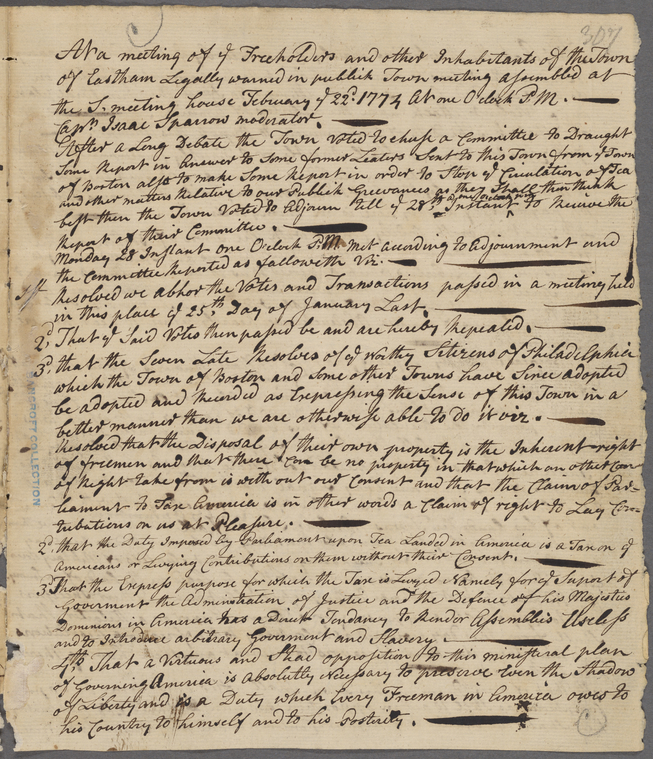 307
At a meeting of ye Freeholders and other Inhabitants of the Town
of Eastham Legally warned in publick Town meeting assembled at
the S. meeting house February ye 22d. 1774 At one Oclock P.M.
Capn. Isaac Sparrow moderator.
After a Long Debate the Town Voted to chuse a Committee to Draught
Some Report in Answer to Some former Leaters Sent to this Town from ye Town
of Boston also to make Some Report in order to Stop ye Circulation of Tea
and other matters Relative to our Publik Grevances as they Shall then think
best then the Town Voted to Adjourn till ye 28th. Instant to Receive the
Report of their Committee.
Monday 28 Instant one Oclock P.M. met according to adjournment and
the Committee Reported as followeth Viz.
1st Resolved we abhor the Votes and Transactions passed in a meeting held
in this place ye 25th Day of January Last
2d. That ye Said Votes then passed be and are hereby Repealed.
3d. that the Seven Late Resolves of ye worthy Setizens of Philadelphia
which the Town of Boston and Some other Towns have Since adopted
be adopted and Recorded as Expressing the Sense of this Town in a
better manner than we are otherwise able to do it viz.
Resolved that the Disposal of their own property is the Inherent right
of freemen and that there Can be no property in that which an other Can
of Right take from us with out our Consent and that the Claim of Par-
liament to Tax America is in other words a Claim of right to Levy Con-
tributions on us at Pleasure.
2d. that the Duty Imposed by Parliament upon Tea Landed in America is a Tax on ye
Americans or Livying Contributions on them without their Consent.
3d That the Express purpose for which the Tax is Livyed Namely for ye Suport of
Goverment the Administration of Justice and the Defence of his Majestes
Dominions in America has a Direct Tendancy to Rendor Assemblies Useless
and to Introduce arbitrary Goverment and Slavery
4th. That a Virtuous and Stead opposition to this ministeral plan
of Governing America is absolutly Necessary to preserve Even the Shadow
of Liberty and is a Duty which Every Freeman in America owes to
his Country to himself and to his Posterity.
BANCROFT COLLECTION